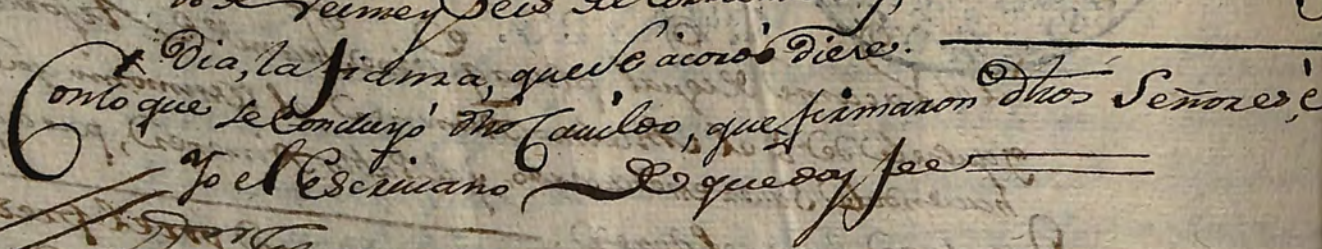 Veinte y Seis de
Dia, la fianza, que Se acordó diere.
Con lo que se Concluyó dho Cavildo, que firmaron dhos Señores, è
Yo el Escrivano De que doy fee